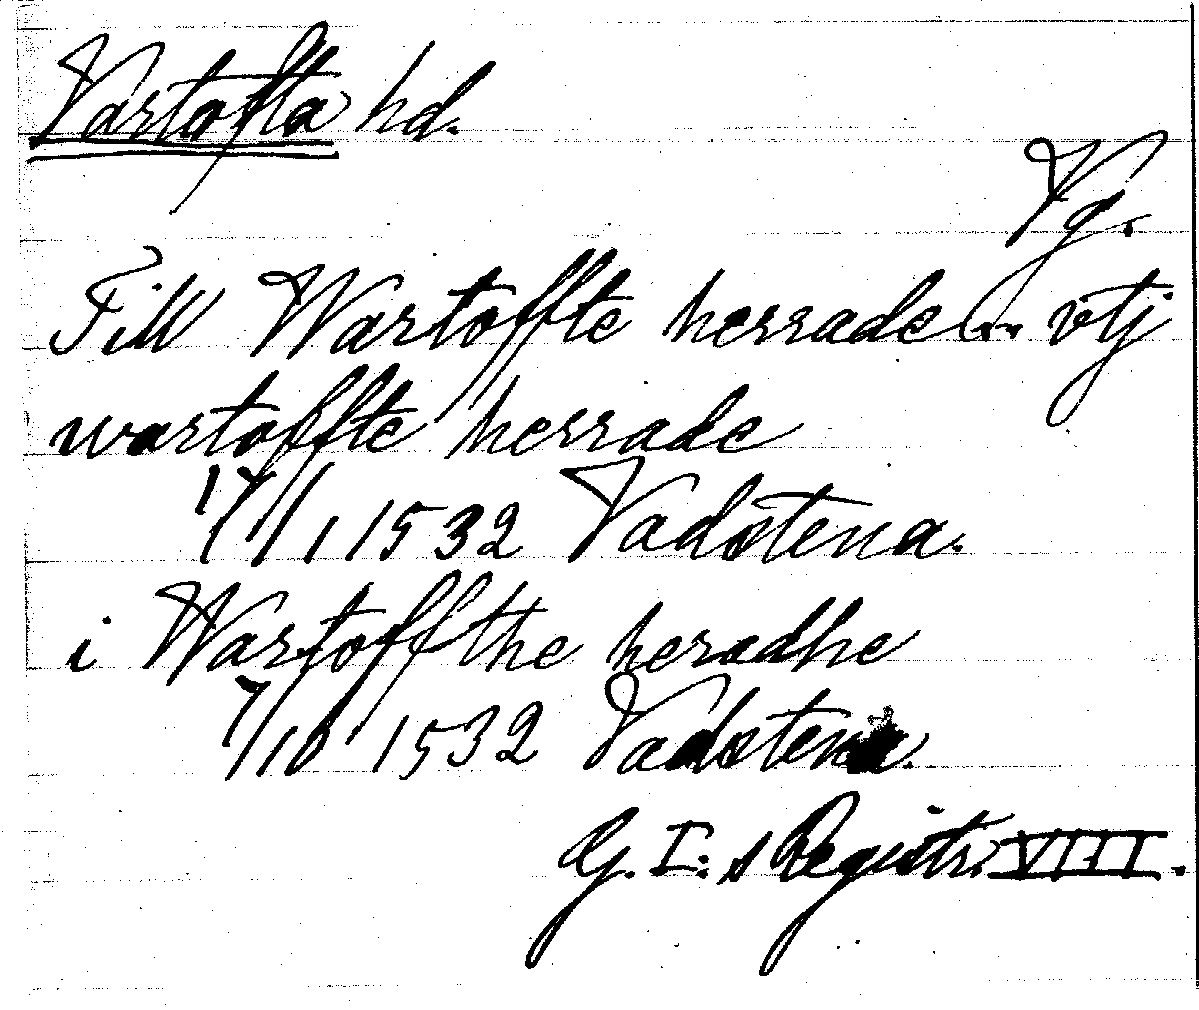 Vartofta hd.
Vg.
Till Wartoffte herrade ... vtj
wartoffte herrade
17/1 1532 Vadstena.
i Wartoffthe heradhe
7/10 1532 Vadstena.
G. I:s Registr. VIII.